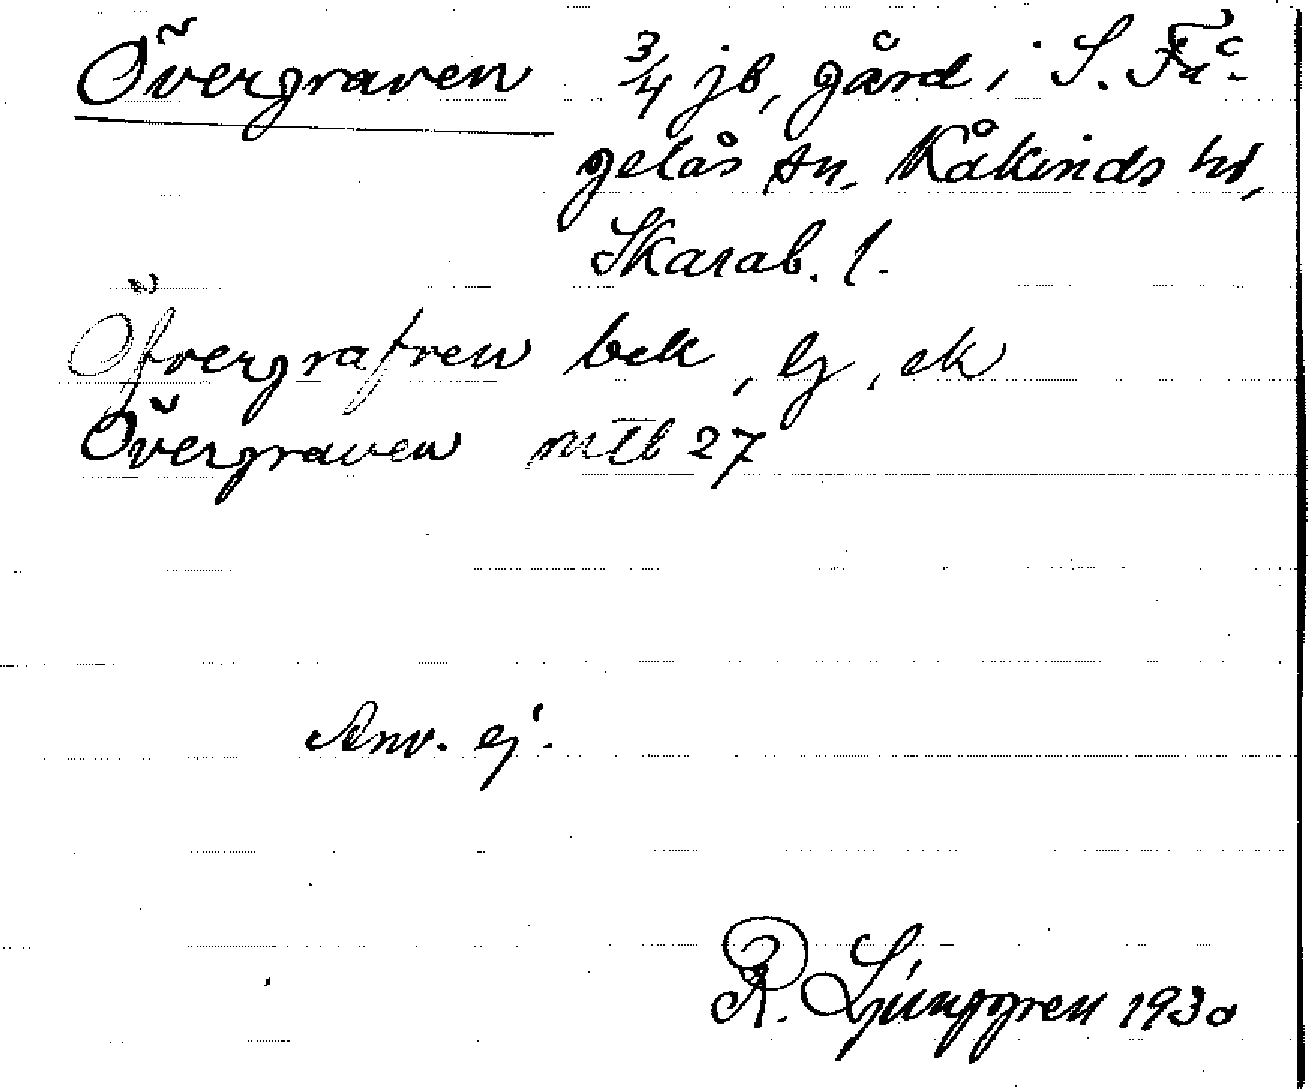 Övergraven 3/4 jb, gård i S. Få-
gelås sn. Kåkinds hd,
Skarab. l.
Öfvergrafven bek, Ej, ek
Övergraven mtlb 27
Anv. ej.
R. Ljunggren 1930